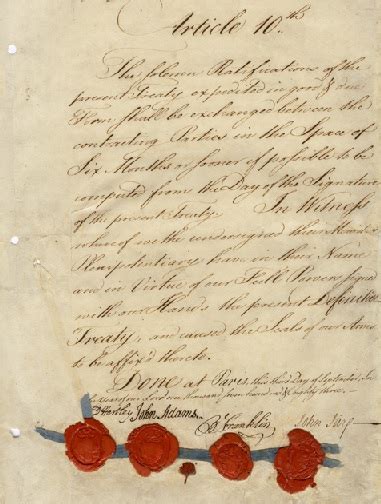 Article 10.th
The solemn Ratifications of the
present Treaty expedited in good & due
Form shall be exchanged between the
contracting Parties in the Space of
Six Months or sooner if possible to be
computed from the Day of the Signature
of the present Treaty. In Witness
whereof we the undersigned their Ministers
Plenipotentiary have in their Name
and in Virtue of our Full Powers signed
with our Hands the present Definitive
Treaty, and caused the Seals of our Arms
to be affixed thereto.
Done at Paris, this third Day of September, In
the year of our Lord one thousand seven hundred & eighty three.
D Hartley John Adams. B Franklin John Jay